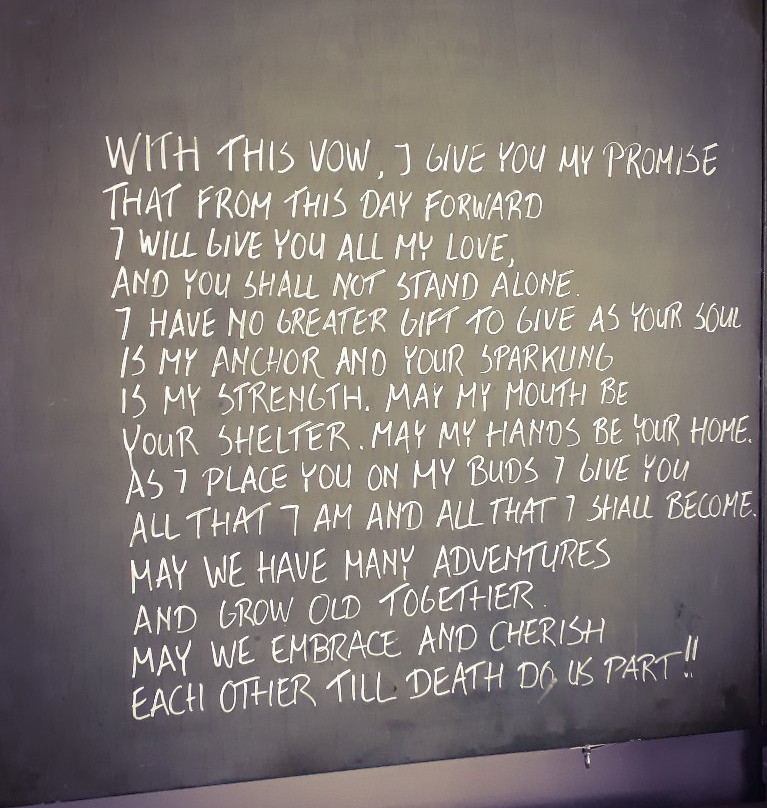 WITH THIS VOW, I GIVE YOU MY PROMISE
THAT FROM THIS DAY FORWARD
I WILL GIVE YOU ALL MY LOVE,
AND YOU SHALL NOT STAND ALONE.
I HAVE NO GREATER GIFT TO GIVE AS YOUR SOUL
IS MY ANCHOR AND YOUR SPARKLING
IS MY STRENGTH. MAY MY MOUTH BE
YOUR SHELTER. MAY MY HANDS BE YOUR HOME.
AS I PLACE YOU ON MY BUDS I GIVE YOU
ALL THAT I AM AND ALL THAT I SHALL BECOME.
MAY WE HAVE MANY ADVENTURES
AND GROW OLD TOGETHER.
MAY WE EMBRACE AND CHERISH
EACH OTHER TILL DEATH DO US PART!!